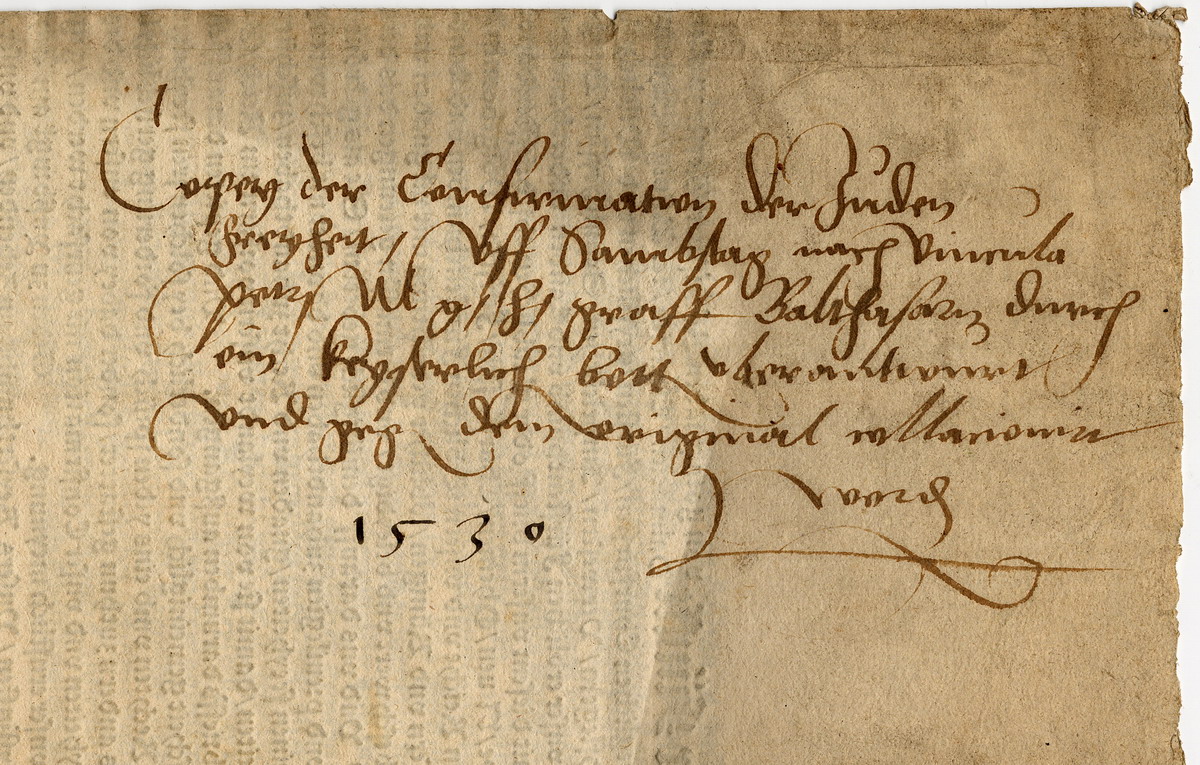 Copey der Confirmation der Juden
freyheit / Uff Sambstag nach Vincula
petri M g / h / graff Balthasarn durch
ein keyserlich bott uberantwurt
und geg dem original collacionirt
word
1530